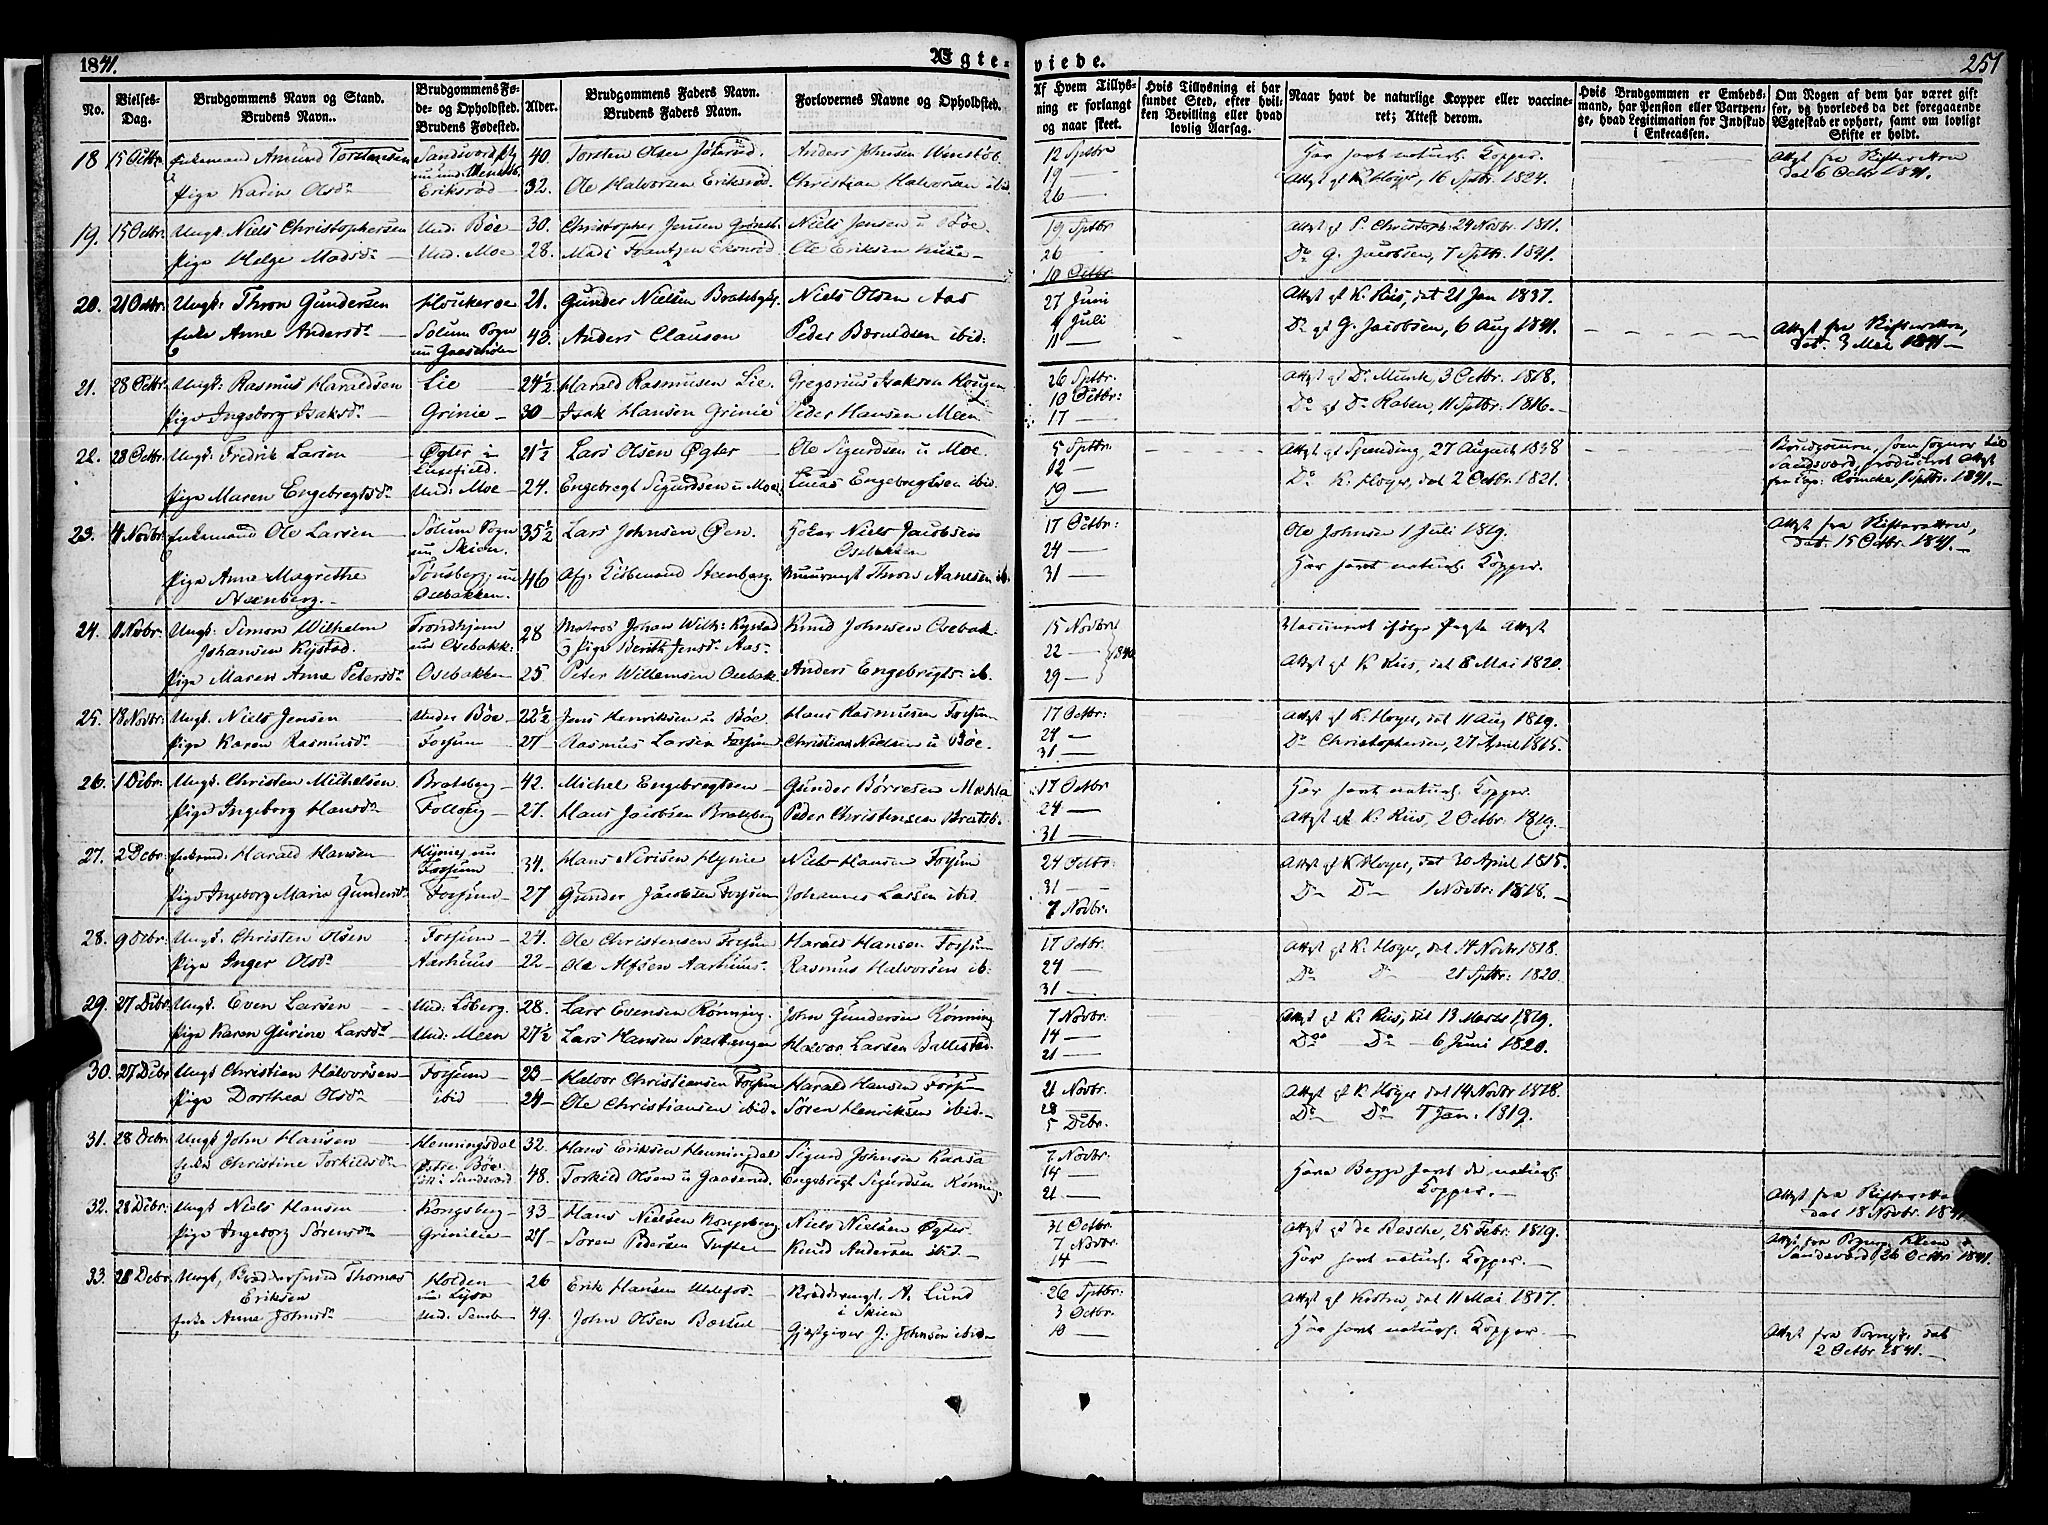 1841.
Ægte-
viede.
251
No.
Vielses-
Dag.
Brudgommens Navn og Stand.
Brudens Navn..
Brudgommens Fø-
de- og Opholdsted.
Brudens Fødested.
Alder.
Brudgommens Faders Navn.
Brudens Faders Navn.
Forlovernes Navne og Opholdsted.
Af Hvem Tillys-
ning er forlangt
og naar skeet.
Hvis Tillysning ei har
fundet Sted, efter hvil-
ken Bevilling eller hvad
lovlig Aarsag.
Naar havt de naturlige Kopper eller vaccine-
ret; Attest derom.
Hvis Brudgommen er Embeds-
mand, har Pension eller Vartpen-
ge, hvad Legitimation for Indskud
i Enkecassen.
Om Nogen af dem har været gift
før, og hvorledes da det foregaaende
Ægteskab er ophørt, samt om lovligt
Skifte er holdt.
18 15 Octbr. Enkemand Amund Torstensen 40. Torsten Olsen Anders Johnsen 12 Sptbr Har havt naturl. Kopper. Attest fra Skifteretten
Pige Karin Olsdr Eriksrød 32. Ole Halvorsen Eriksrød. Christian Halvorsen ibid. 19 — Attest af K. Høyer, 16 Sptbr. 1824. dat 6 Octbr 1841.
26 —
19. 15 Octbr. Ungk. Niels Christophersen Und. Bøe 30. Christopher Jensen Niels Jensen u Bøe. 19 Sptbr Attest af P. Christoph: 24 Novbr. 1811.
Pige Helge Madsdr Und. Moe 28. Mads Ole Eriksen 26 Do G. Jacobsen, 7 Sptbr. 1841.
10 Octbr.
20. 21 Octbr. Ungk. Thron Gundersen 21. Gunder Nielsen Bratsbg. Niels Olsen Aas 27 Juni Attest af K. Riis, dat 21 Jan 1837.
Enke Anne Andersdr Solum Sogn 43. Anders Clauson Peder ibid: 4 Juli Do af G. Jacobsen, 6 Aug 1841. Attest fra Skifteretten,
nu 11 — dat. 3 Mai 1841 —
21. 28 Octbr. Ungk. Rasmus Haraldsen Lie 24½ Harald Rasmusen Lie. Gregorius Isaksen Hougen 26 Sptbr. Attest af Dr. Munk, 3 Octbr. 1818.
Pige Ingeborg Isaksdr Grinie 30 Isak Hansen Grinie Peder Hansen Meen 10 Octbr: Do af Dr. Raben, 11 Sptbr. 1816.
17 —
22. 28 Octbr. Ungk. Fredrik Larsen Øgter i 21½ Lars Olsen Øgter Ole Sigurdsen u Moe. 5 Sptbr. Attest af Spending, 27 August 1838 Brudgommen, som Sogner til
12 — Sandsværd, produceret Attest
Pige Maren Engebregtsdr Und. Moe 24. Engebregt Sigurdsen u Moe Lucas Engebregtsen ibid. 19 — Do K. Høyer, dat 2 Octbr. 1821. 1 Sptbr. 1841.
23. 4 Novbr. Enkemand Ole Larsen Solum Sogn 35½ Lars Johnsen Øen. Niels Jacobsen 17 Octbr: Ole Johnsen 1 Juli 1819. Attest fra Skifteretten,
nu Skien. Osebakken 24 — dat. 15 Octbr. 1841.
Pige Anne Magrethe Tønsberg, nu 46 Steenberg. Thron Aanesen ib. 31 — Har havt naturl. Kopper.
Steenberg. Osebakken.
24. 11 Novbr. Ungk. Simon Wilhelm Trondhjem 28 Matros Johan Wilh: Kystad Knud Johnsen Osebak. 15 Novbr Vaccineret ifølge Attest
Johansen Kystad. nu Osebakk: Pige Berith Jensdr Aas 22 — 1840
Pige Maren Anne Petersdr Osebakken 25 Peter Willemsen Osebak. Anders Engebregts. ib. 29 — Attest af K. Riis, dat 8 Mai 1820.
25. 18 Novbr. Ungk. Niels Jensen Under Bøe 22½ Jens Henriksen u Bøe. Hans Rasmusen Forsum 17 Octbr: Attest af K. Høyer, dat 11 Aug 1819.
Pige Karen Rasmusdr Forsum 27 Rasmus Larsen Forsum Christian Nielsen u Bøe. 24 — Do Christophersen, 27 April 1815.
31 —
26. 1 Decbr. Ungk. Christen Mikkelsen Bratsberg 42. Michel Engebregtsen Gunder Børresen 17 Octbr Har havt naturl. Kopper.
Pige Ingeborg Hansdr 27. Hans Jacobsen Bratsberg Peder Christensen Bratsb. 24 — Attest af K. Riis, 2 Octbr. 1819.
31 —
27. 2 Decbr. Enkemd. Harald Hansen Hynie, nu 34. Hans Hynie Niels Hansen Forsum 24 Octbr. Attest af K. Høyer, dat 30 April 1815.
Forsum 31 —
Pige Ingeborg Maria Gundersdr Forsum 27 Gunder Jacobsen Forsum Johannes Larsen ibid. 7 Novbr. Do Do 1 Novbr: 1818.
28. 9 Decbr. Ungk. Christen Olsen Forsum 24. Ole Christensen Forsum Harald Hansen Forsum 17 Octbr: Attest af K. Høyer, dat 14 Novbr 1818.
Pige Inger Olsdr Aarhuus 22 Ole Alfsen Aarhuus. Rasmus Halvorsen ib. 24 — Do Do 21 Sptbr: 1820.
31 —
29. 27 Decbr. Ungk. Even Larsen Und. Løberg. 28. Lars Evensen Rønning. John Gundersen Rønning 7 Novbr. Attest af K. Riis, dat 13 Marts 1819.
Pige Karen Gurine Larsdr Und. Meen 27½ Lars Hansen Svartangen Halvor Larsen Ballestad. 14 — Do Do 6 Juni 1820.
21 —
30. 27 Decbr Ungk Christian Halvorsen Forsum 23 Halvor Christiansen Forsum Harald Hansen Forsum 21 Novbr. Attest af K. Høyer dat 14 Novbr 1818.
Pige Dorthea Olsdr ibid 24 Ole Christiansen ibid. Søren Henriksen ibid. 28 Do Do 7 Jan. 1819.
5 Decbr.
31. 28 Decbr. Ungk John Hansen Henningsdal 32. Hans Eriksen Henningdal Sigurd Johnsen 7 Novbr.
Enke Christine Torkildsdr 48. Torkild Olsen u Engebregt Sigurdsen Rønning. 14 — Have Begge havt de naturl.
21 — Kopper. Attest fra Skifteretten
dat 18 Novbr. 1841.
32. 28 Decbr. Ungk Niels Hansen Kongsberg 33 Hans Nielsen Kongsberg Niels Nielsen Øgter. 31 Octbr. Attest af de Besche, 25 Febr. 1819.
Pige Ingeborg Sørensdr 27 Søren Pedersen Tufte Knud Andersen ibid. 7 Novbr. Har havt naturl. Kopper. Sandsværd, 26 Octbr 1841.
14 —
33. 28 Decbr Ungk, Thomas Holden 26 Erik Hansen A. Lund 26 Sptbr. Attest af dat 11 Mai 1817.
Eriksen i Skien 3 Octbr.
Enke Anne Johnsdr 49. John Olsen Gjestgiver J. Johnsen ibid 10 — Har havt naturl. Kopper. Attest fra dat
2 Octbr. 1841.